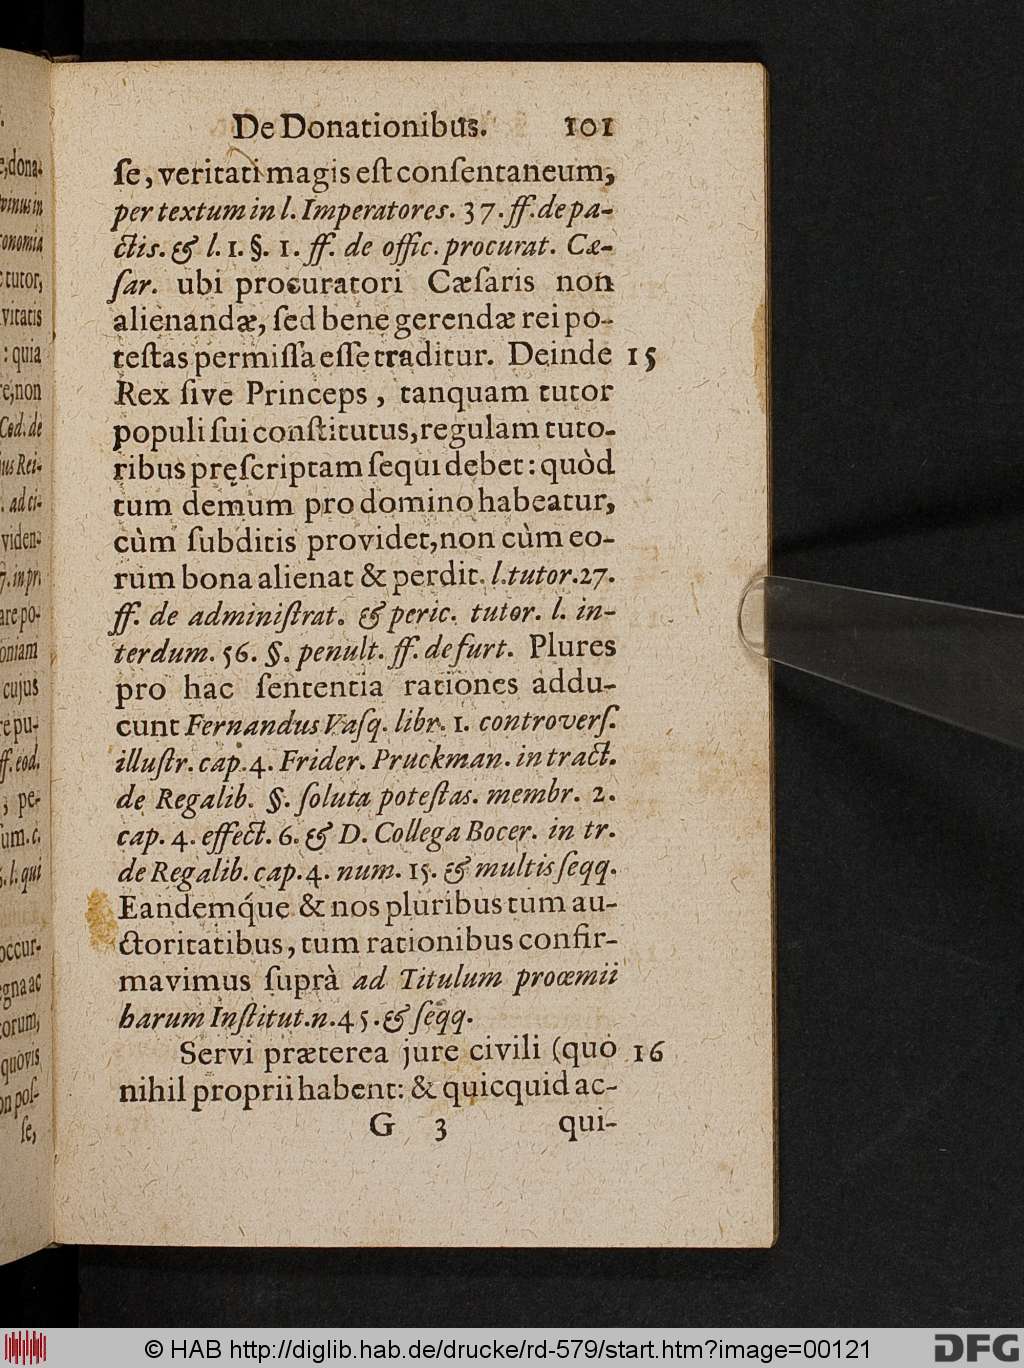 De Donationibus. 101
ſe, veritati magis eſt conſentaneum;
per textum in l. Imperatores. 37. ff. de pa-
ctis. & l. 1. §. 1. ff. de offic. procurat. Cæ-
ſar. ubi procuratori Cæſaris non
alienandæ, ſed bene gerendæ rei po-
teſtas permiſſa eſſe traditur. Deinde 15
Rex ſive Princeps, tanquam tutor
populi ſui conſtitutus, regulam tuto-
ribus pręſcriptam ſequi debet: quòd
tum demum pro domino habeatur,
cùm ſubditis providet, non cùm eo-
rum bona alienat & perdit. l. tutor. 27.
ff. de adminiſtrat. & peric. tutor. l. in-
terdum. 56. §. penult. ff. de furt. Plures
pro hac ſententia rationes addu-
cunt Fernandus Vaſq. libr. 1. controverſ.
illuſtr. cap. 4. Frider. Pruckman. in tract.
de Regalib. §. ſoluta poteſtas. membr. 2.
cap. 4. effect. 6. & D. Collega Bocer. in tr.
de Regalib. cap. 4. num. 15. & multis ſeqq.
Eandemq́ue & nos pluribus tum au-
ctoritatibus, tum rationibus confir-
mavimus ſuprà ad Titulum proœmii
harum Inſtitut. n. 45. & ſeqq.
Servi præterea jure civili (quo 16
nihil proprii habent: & quicquid ac-
G 3 qui-
dona-
tutor,
vitatis
: quia
non
Cod. de
ad ci-
viden-
cujus
ff. eod.
; pe-
l. qui
occur-
quovis
ſe,
© HAB http://diglib.hab.de/drucke/rd-579/start.htm?image=00121
DFG